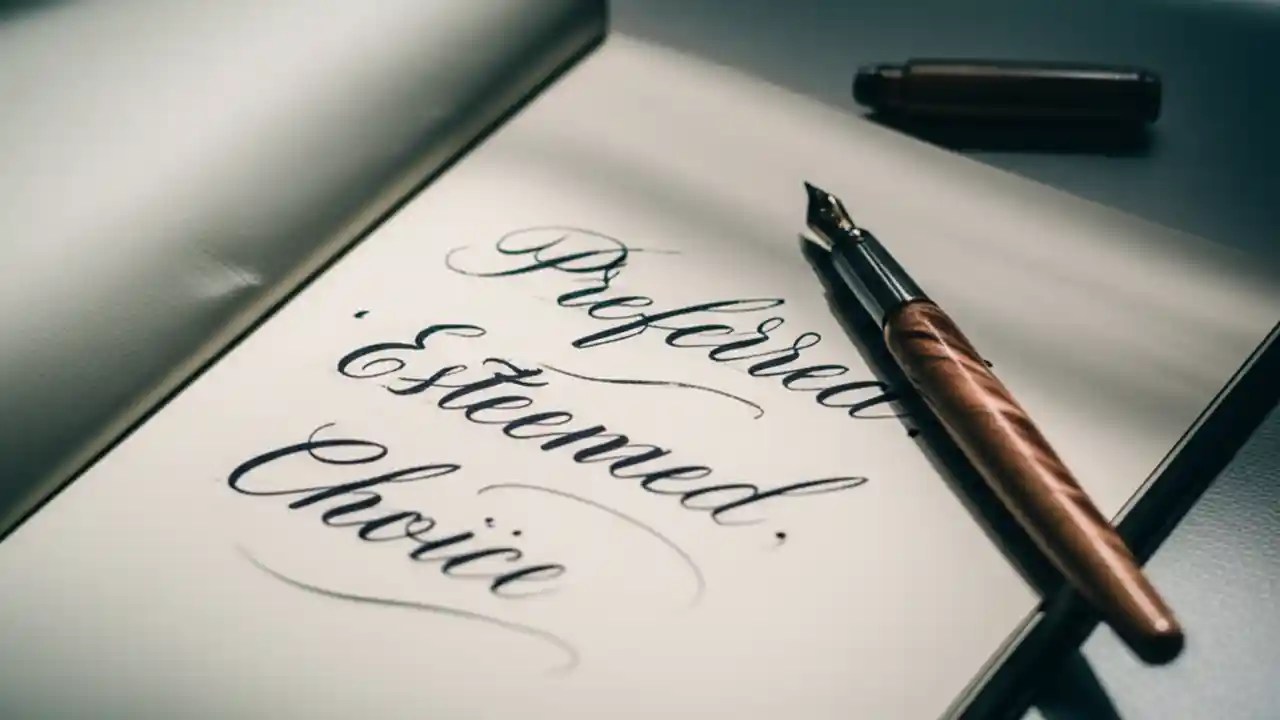 Preferred
Esteemed,
Choice